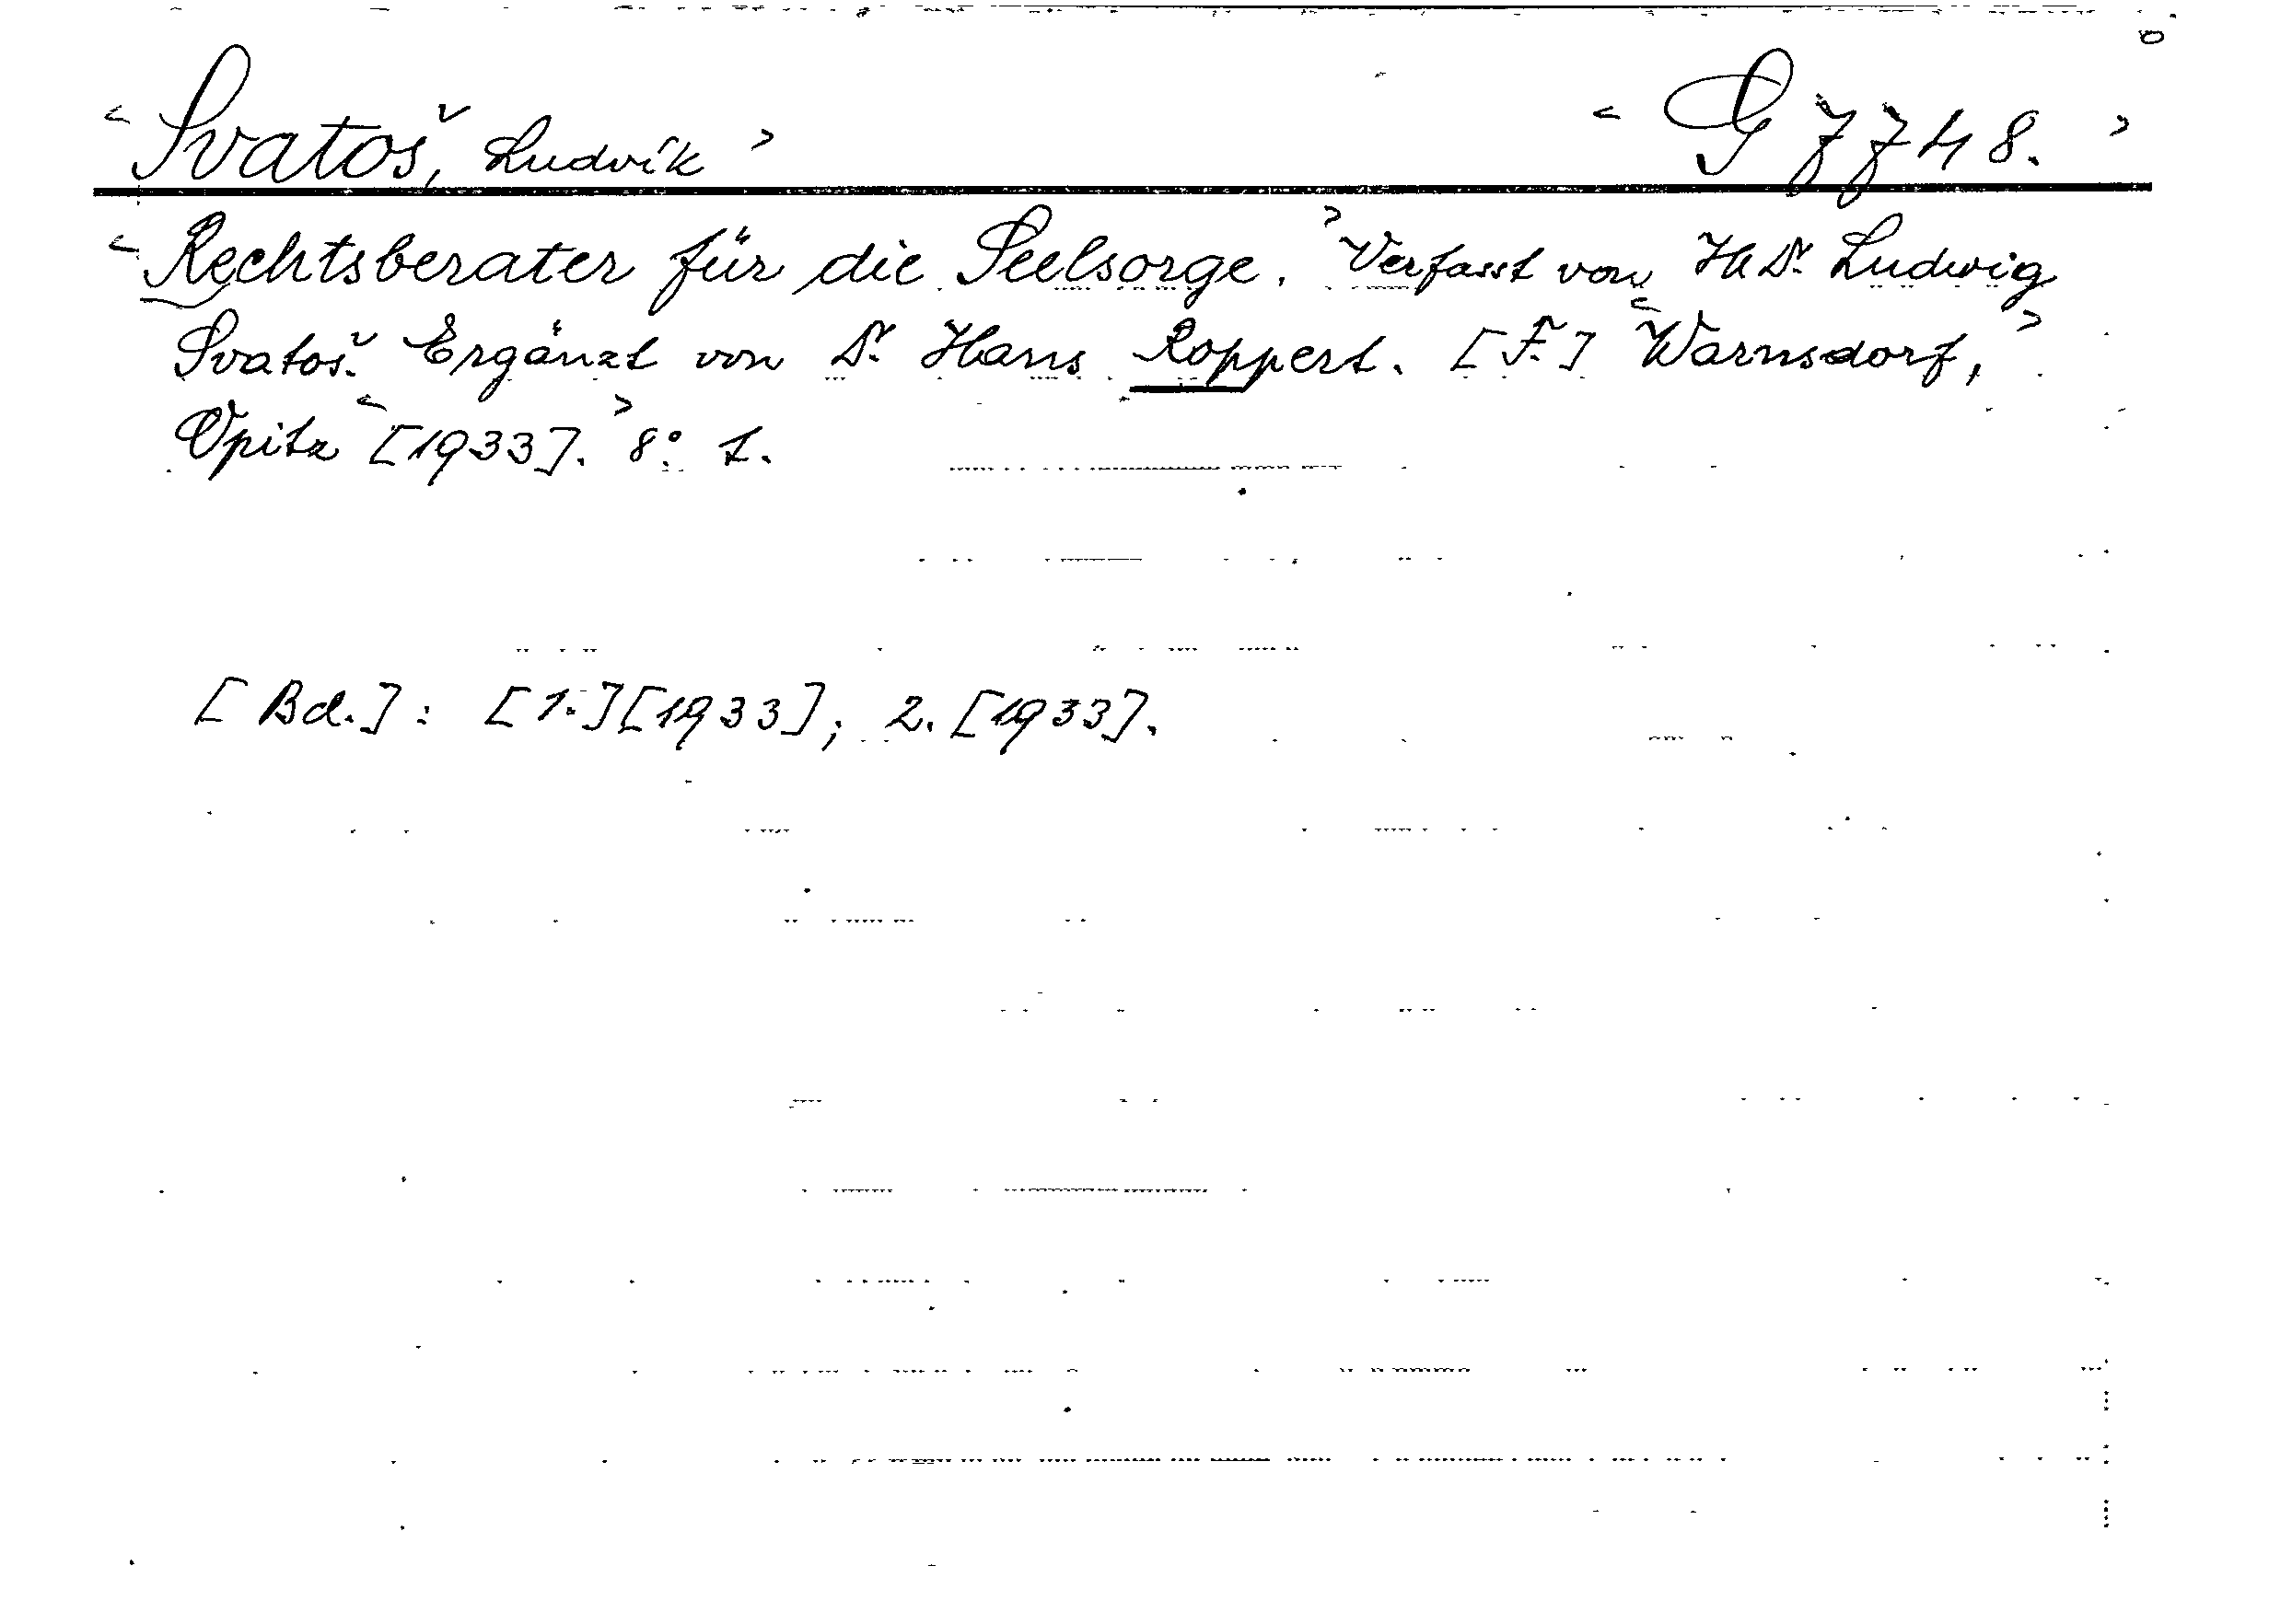 <Svatoš, Ludvík> <G 7748.>
<Rechtsberater für die Seelsorge.> Verfasst von Dr. Ludwig
Svatoš. Ergänzt von Dr. Hans Roppert. [F.] <Warnsdorf,>
Opitz <[1933].> 8° 1.
[Bd.]: [1.][1933]; 2. [1933].